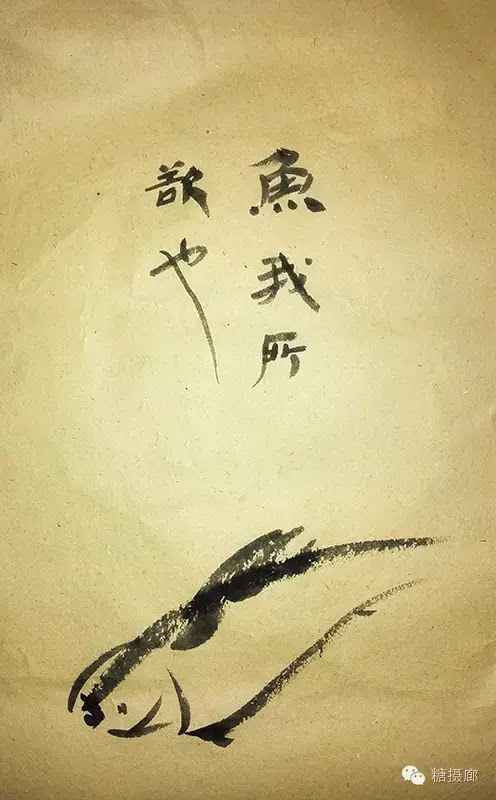 魚我所
欲也
糖摄廊